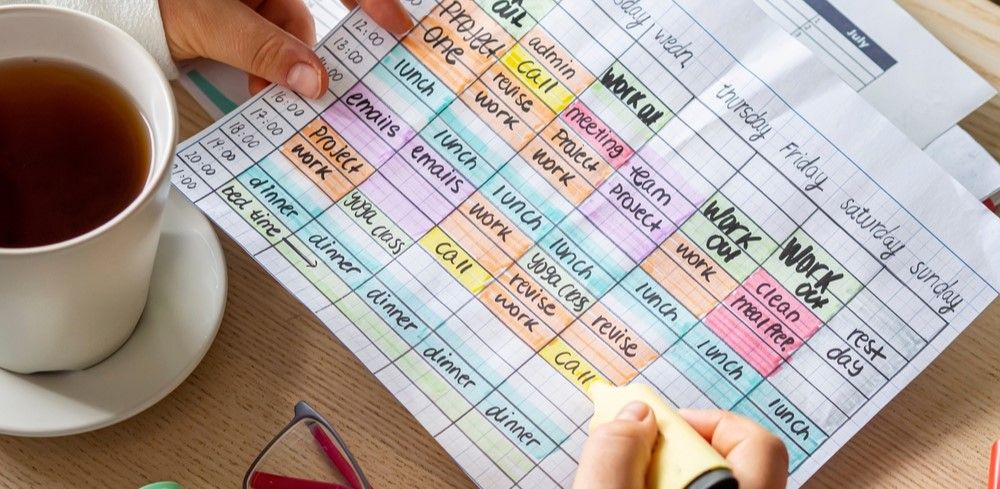 July
wedn
thursday
Friday
saturday
sunday
12:00
13:00
16:00
17:00
18:00
19:00
20:00
21:00
PROJECT
one
lunch
emails
PROJECT
work
dinner
bed time
out
admin
call
revise
work
lunch
emails
yoga class
dinner
WORK out
meeting
PROJECT
work
lunch
work
call
dinner
team
project
lunch
yoga class
revise
work
dinner
WORK
out
work
lunch
revise
call
dinner
WORK
out
clean
meal prep.
lunch
rest
day
lunch